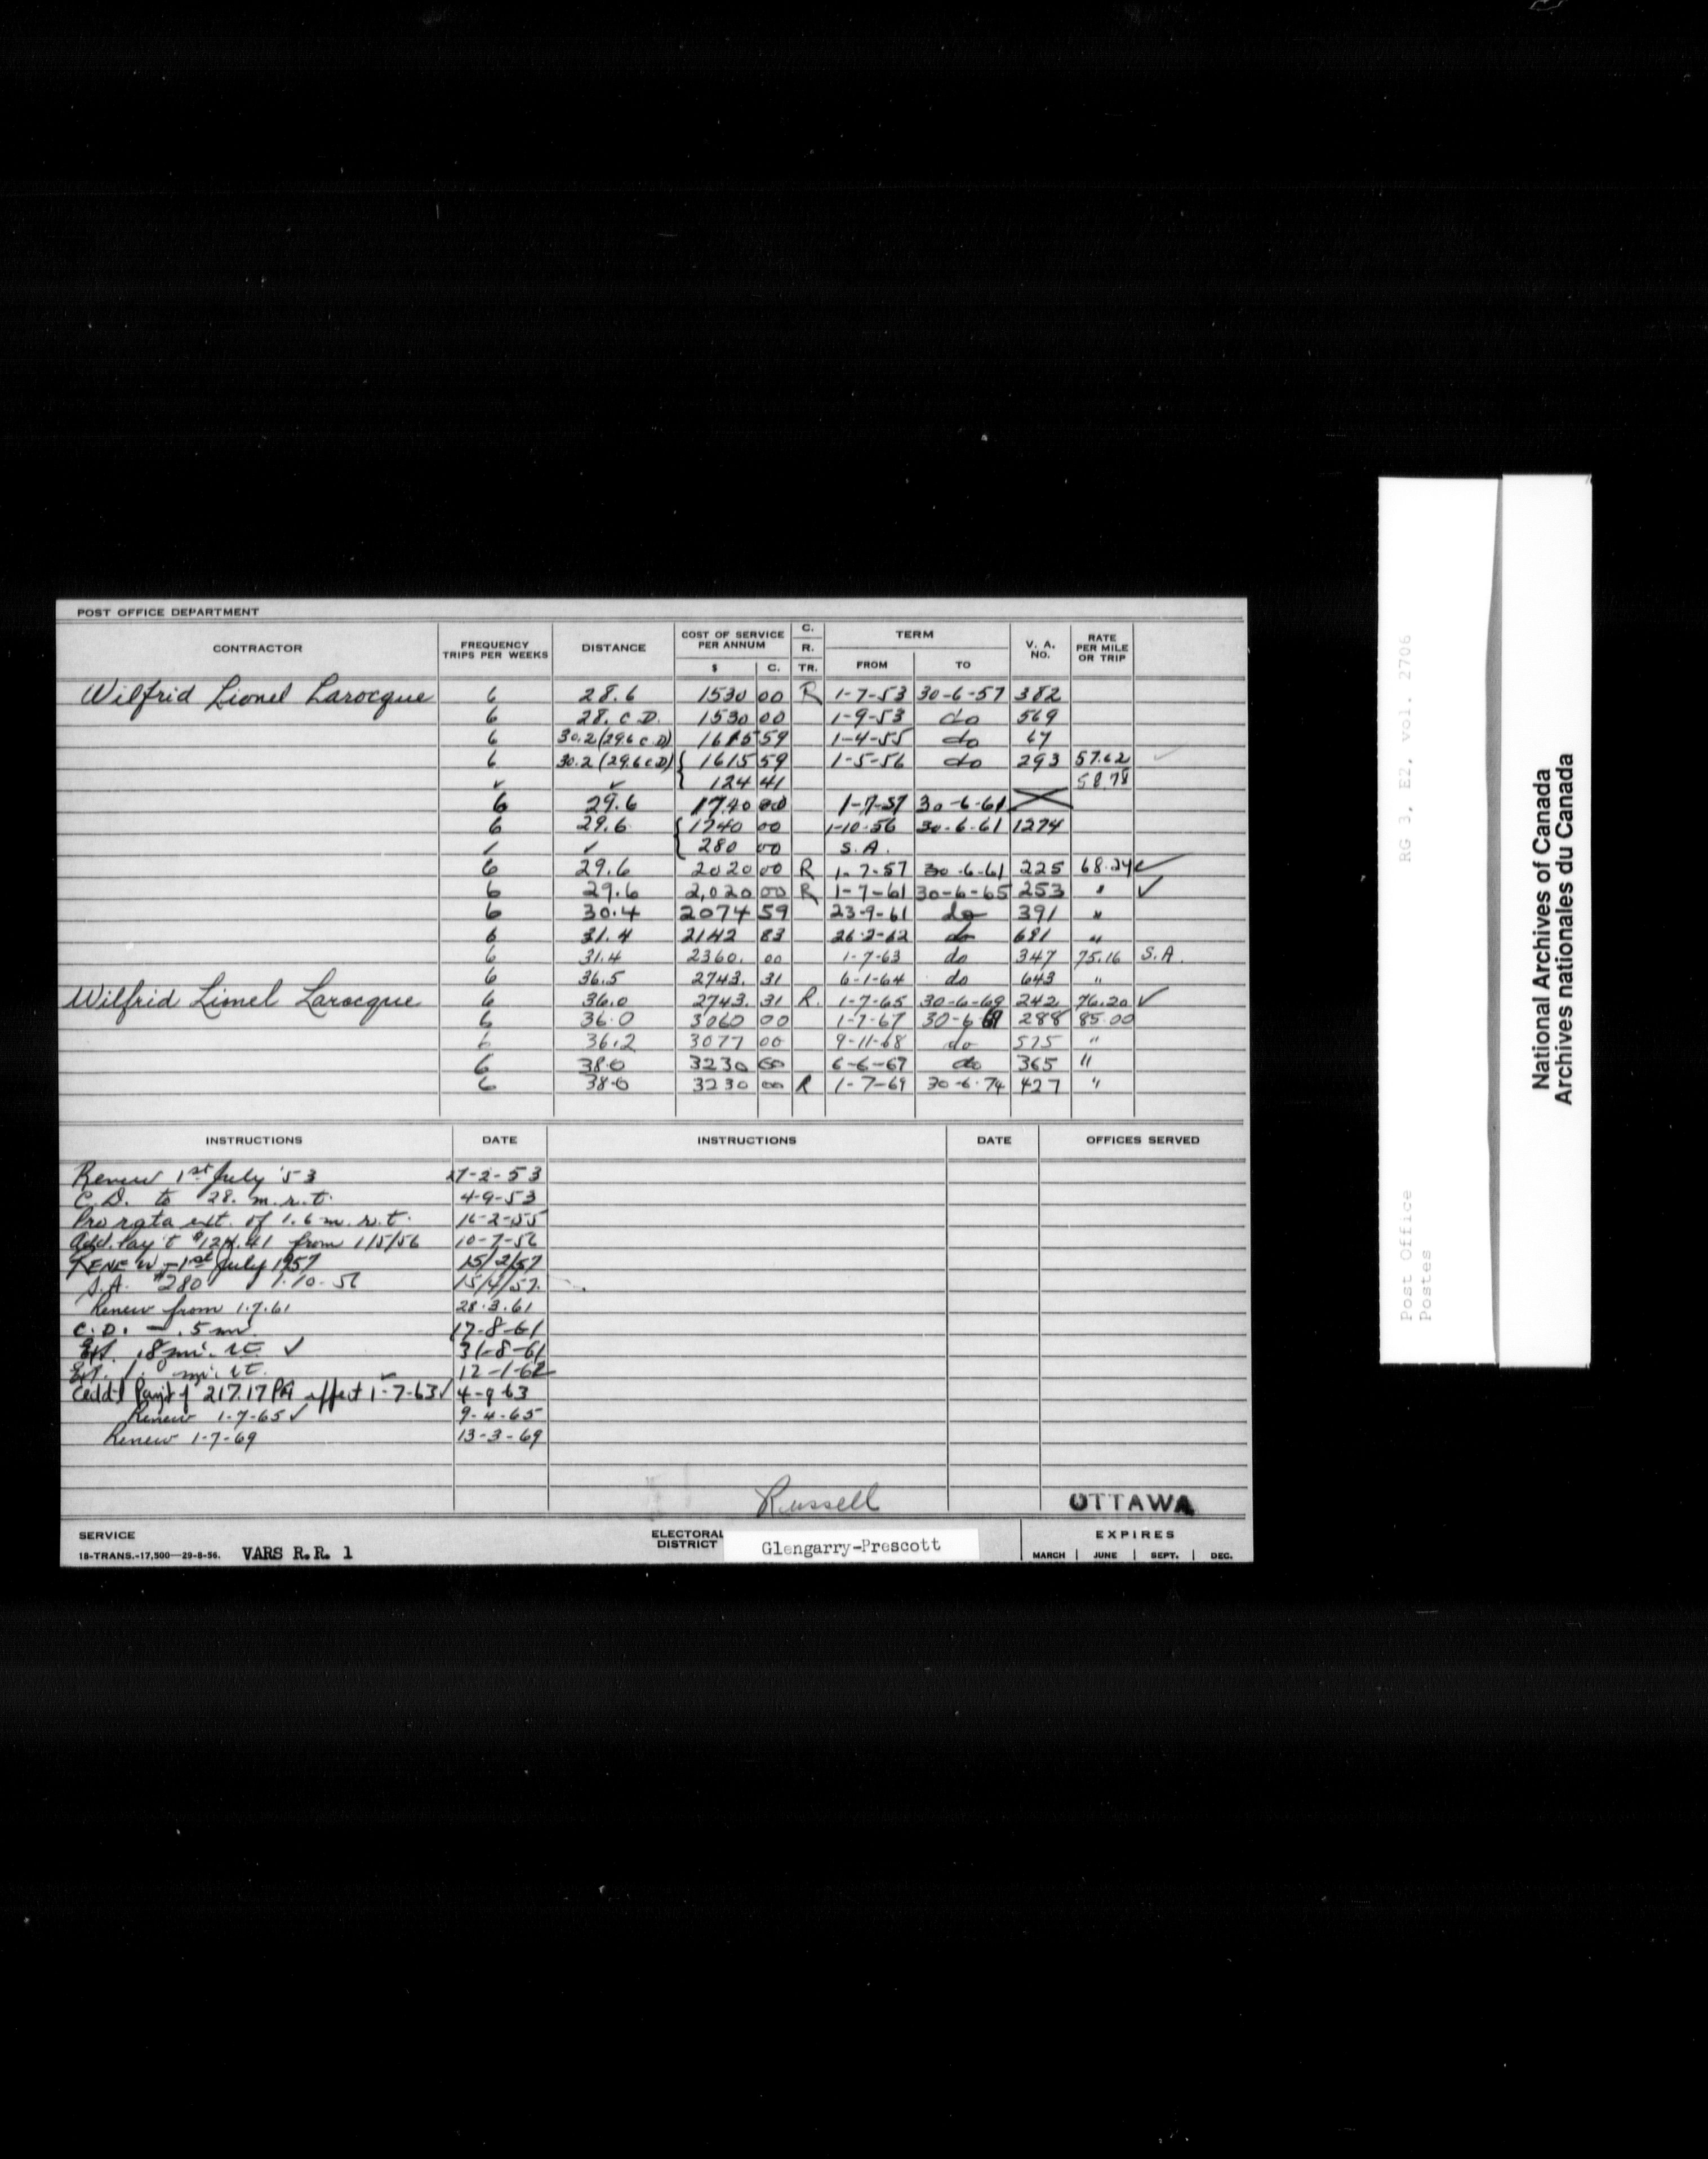 POST OFFICE DEPARTMENT
CONTRACTOR FREQUENCY TRIPS PER WEEKS DISTANCE COST OF SERVICE PER ANNUM $ C. C. R. TR. TERM FROM TO V. A. NO. RATE PER MILE OR TRIP
Wilfrid Lionel Larocque 6 28.6 1530 00 R 1-7-53 30-6-57 382
6 28. C.D. 1530 00 1-9-53 do 569
6 30.2 (29.6 C.D) 1615 59 1-4-55 do 67
6 30.2 (29.6 CD) { 1615 59 1-5-56 do 293 57.62 ✓
✓ ✓ { 124 41 58.78
6 29.6 1740 00 1-7-57 30-6-61
6 29.6 { 1740 00 1-10-56 30-6-61 1274
✓ ✓ { 280 00 S.A.
6 29.6 2020 00 R 1-7-57 30-6-61 225 68.24 ✓
6 29.6 2,020 00 R 1-7-61 30-6-65 253 " ✓
6 30.4 2074 59 23-9-61 do 391 "
6 31.4 2142 83 26-2-62 do 681 "
6 31.4 2360. 00 1-7-63 do 347 75.16 S.A.
6 36.5 2743. 31 6-1-64 do 643 "
Wilfrid Lionel Larocque 6 36.0 2743. 31 R. 1-7-65 30-6-69 242 76.20 ✓
6 36.0 3060 00 1-7-67 30-6-69 288 85.00
6 36.2 3077 00 9-11-68 do 575 "
6 38.0 3230 00 6-6-69 do 365 "
6 38.0 3230 00 R 1-7-69 30-6-74 427 "
INSTRUCTIONS DATE INSTRUCTIONS DATE OFFICES SERVED
Renew 1st July '53 27-2-53
C.D. to 28. m.r.t. 4-9-53
Pro rata ext. of 1.6 m. r.t. 16-2-55
Add. Pay't $124.41 from 1/5/56 10-7-56
RENEW - 1st July 1957 15/2/57
S.A. $280 1-10-56 15/4/57.
Renew from 1.7.61 28.3.61
C.D. - .5 m. 17-8-61
Ext. .8 mi. r.t. ✓ 31-8-61
Ext. 1. mi. r.t. 12-1-62
Add'l Paym't of 217.17 PA effect 1-7-63 ✓ 4-9-63
Renew 1-7-65 ✓ 9-4-65
Renew 1-7-69 13-3-69
Russell
OTTAWA
SERVICE
18-TRANS.-17,500—29-8-56. VARS R.R. 1
ELECTORAL DISTRICT Glengarry-Prescott
EXPIRES
MARCH | JUNE | SEPT. | DEC.
Post Office RG 3, E2, vol. 2706
Postes
National Archives of Canada
Archives nationales du Canada